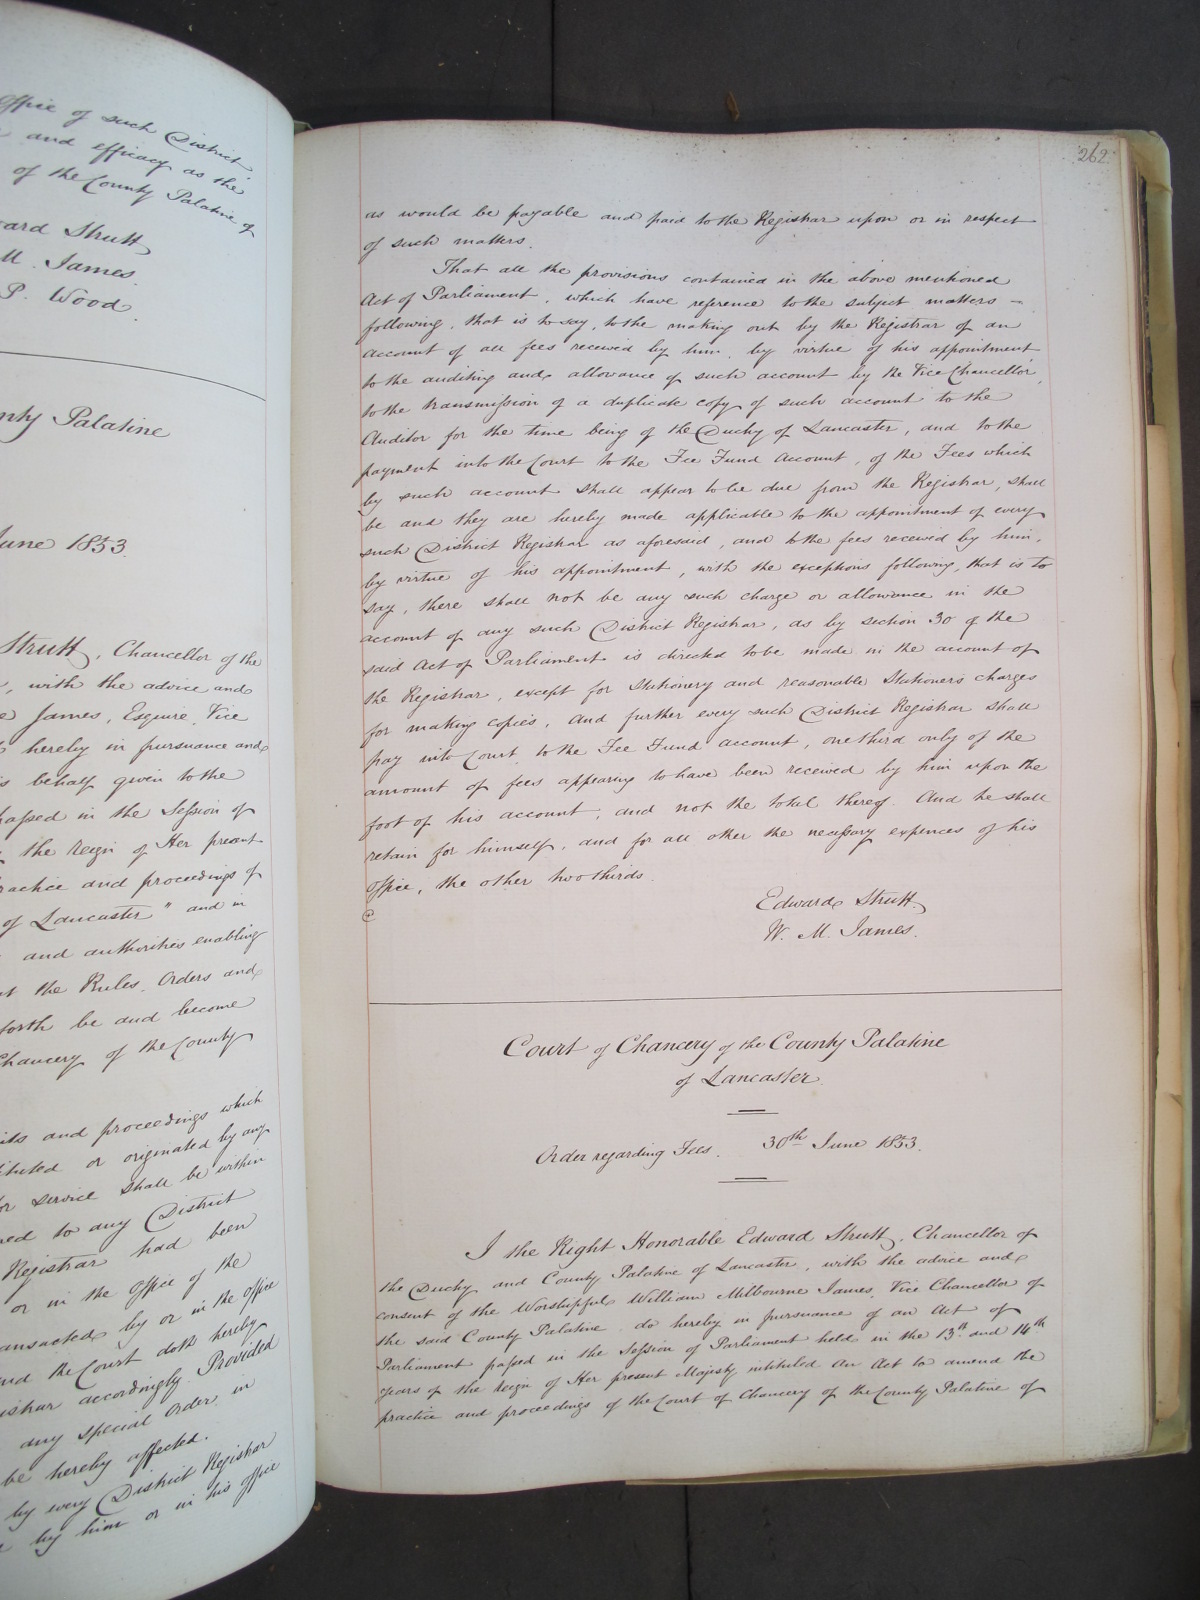 Office of such District
and efficacy as the
of the County Palatine of
Strutt
M. James
P. Wood
Palatine
June 1853.
Strutt, Chancellor of the
, with the advice and
James, Esquire, Vice
hereby in pursuance and
behalf given to the
passed in the Session of
the reign of Her present
practice and proceedings of
of Lancaster" and in
and authorities enabling
the Rules, Orders and
forth be and become
Chancery of the County
and proceedings which
or originated by any
or service shall be within
to any District
Registrar had been
or in the Office of the
transacted by or in the office
and the Court doth hereby
accordingly. Provided
any special Order in
be hereby affected.
by every District Registrar
by him or in his office
262.
as would be payable and paid to the Registrar upon or in respect
of such matters.
That all the provisions contained in the above mentioned
Act of Parliament, which have reference to the subject matters –
following, that is to say, to the making out by the Registrar of an
account of all fees received by him, by virtue of his appointment,
to the auditing and allowance of such account by the Vice Chancellor,
to the transmission of a duplicate copy of such account to the
Auditor for the time being of the Duchy of Lancaster, and to the
payment into the Court to the Fee Fund Account, of the Fees which
by such account shall appear to be due from the Registrar, shall
be and they are hereby made applicable to the appointment of every
such District Registrar as aforesaid, and to the fees received by him,
by virtue of his appointment, with the exceptions following, that is to
say, there shall not be any such charge or allowance in the
account of any such District Registrar, as by section 30 of the
said Act of Parliament is directed to be made in the account of
the Registrar, except for Stationery and reasonable Stationers charges
for making copies, And further every such District Registrar shall
pay into Court to the Fee Fund account, one third only of the
amount of fees appearing to have been received by him upon the
foot of his account, and not the total thereof. And he shall
retain for himself, and for all other the necessary expences of his
office, the other two thirds.
Edward Strutt.
W. M. James.
Court of Chancery of the County Palatine
of Lancaster.
Order regarding Fees. 30th June 1853.
I the Right Honorable Edward Strutt, Chancellor of
the Duchy and County Palatine of Lancaster, with the advice and
consent of the Worshipful William Milbourne James, Vice Chancellor of
the said County Palatine do hereby in pursuance of an Act of
Parliament passed in the Session of Parliament held in the 13th and 14th
years of the reign of Her present Majesty intituled An Act to amend the
practice and proceedings of the Court of Chancery of the County Palatine of